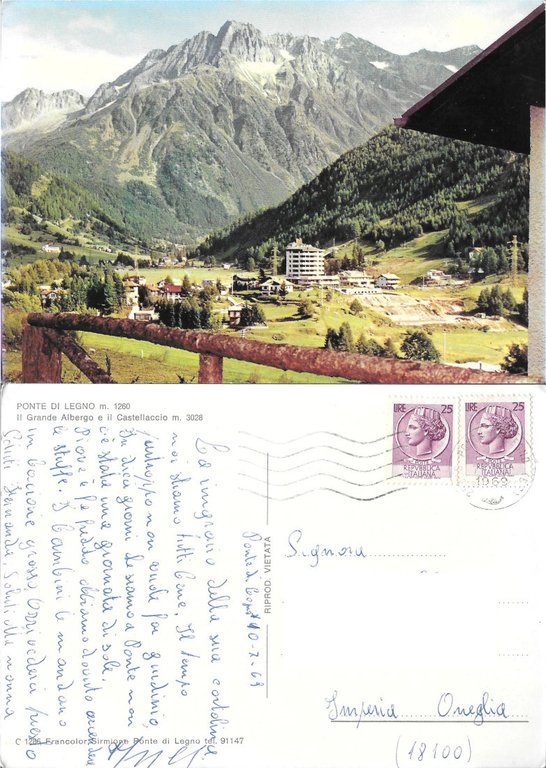 PONTE DI LEGNO m. 1260
Il Grande Albergo e il Castellaccio m. 3028
LIRE 25
REPUBBLICA ITALIANA
LIRE 25
REPUBBLICA ITALIANA
1969
Ponte di Legno 10-7-69
La ringrazio della sua cartolina
noi stiamo tutti bene. Il tempo
purtroppo non è giudizio,
in dieci giorni che siamo a Ponte non
c'è stata una giornata di sole.
Piove e fa freddo abbiamo dovuto accendere
le stufe. I bambini le mandano
un bacione grosso. Arrivederci presto
Saluti Fernanda, Saluti alla nonna
RIPROD. VIETATA
Signora
Imperia Oneglia
(18100)
C 1286 Francolor, Sirmione Ponte di Legno tel. 91147